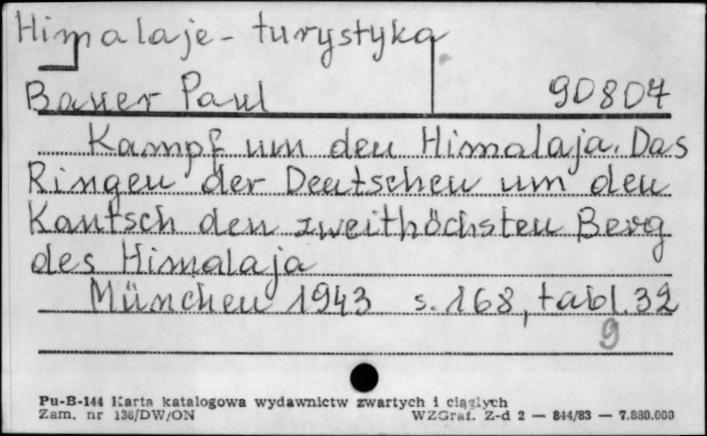 Himalaje - turystyka
Bauer Paul 90807
Kampf um den Himalaja. Das
Ringen der Deutschen um den
Kantsch den zweithöchsten Berg
des Himalaja
München 1943 s. 168, tabl. 32
9
Pu-B-144 Karta katalogowa wydawnictw zwartych i ciągłych
Zam. nr 136/DW/ON WZGraf. Z-d 2 — 844/83 — 7.880.000